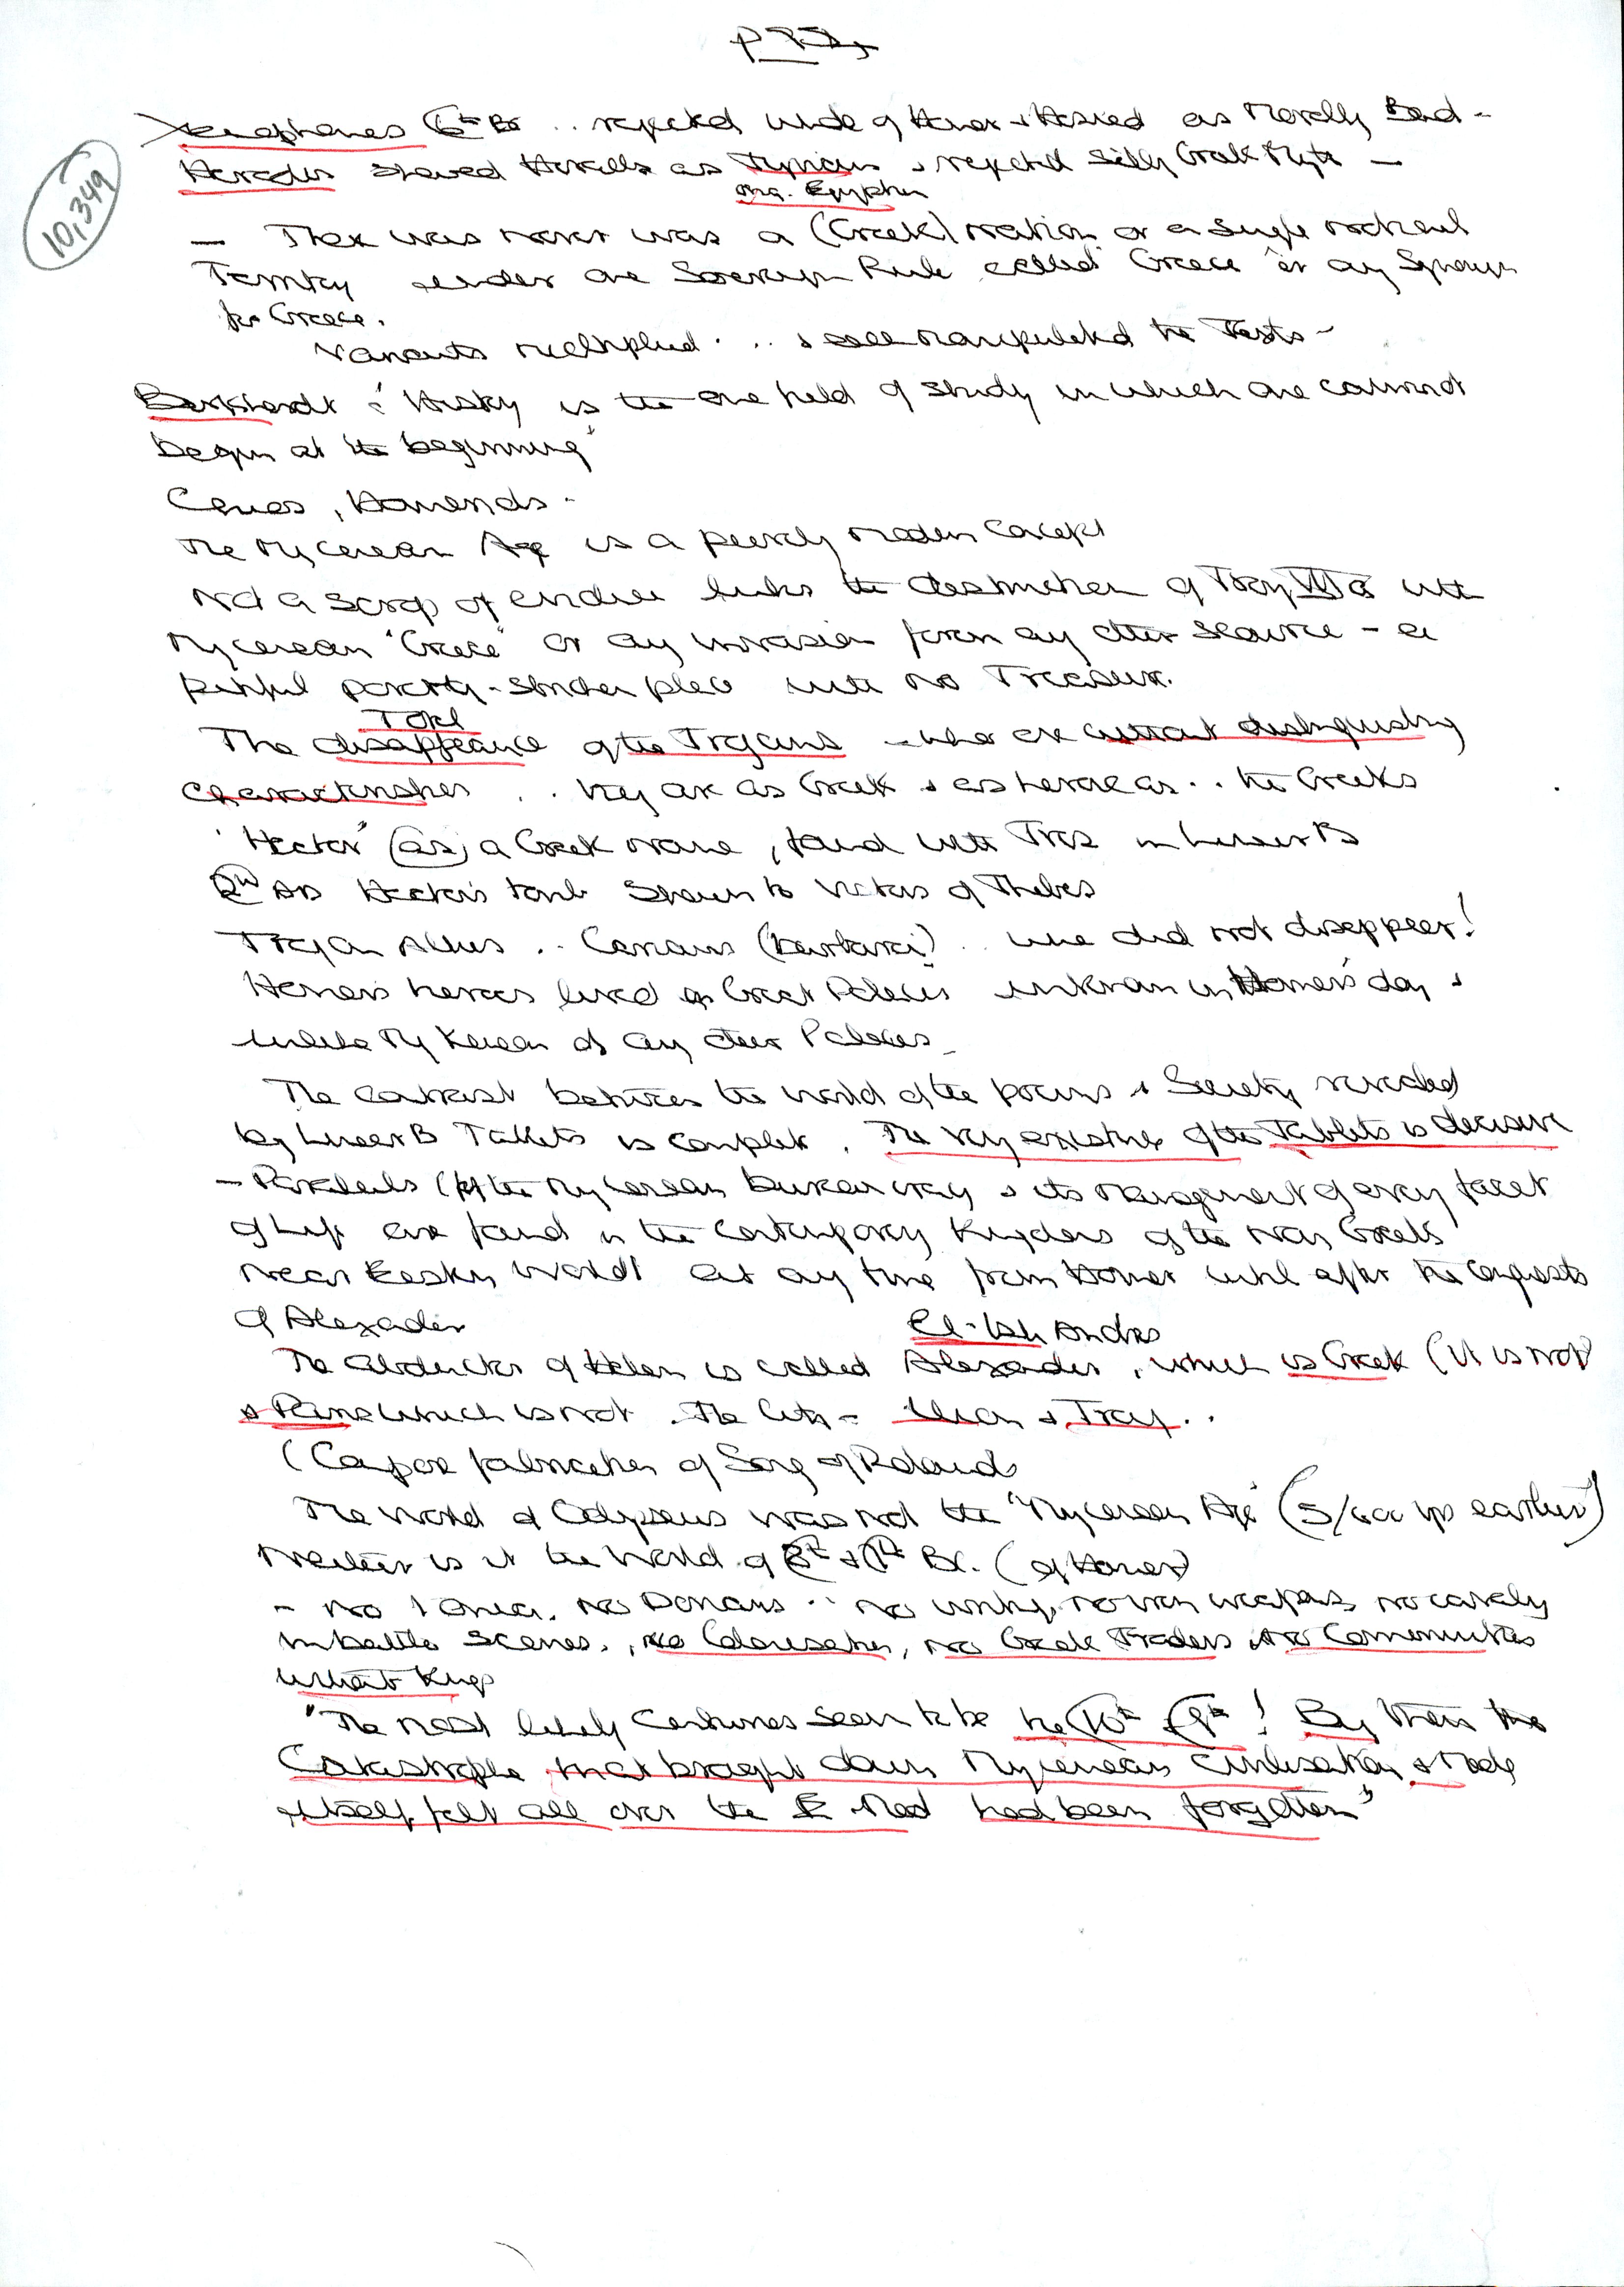 10,349
Xenophanes 6th BC .. rejected whole of Homer & Hesiod as Morally Bad -
Herodotus showed Herakles as & rejected Silly Greek Myths -
Egyptian
- There was never was a (Greek) nation or a single national
Territory under one Sovereign Rule called Greece or any Synonym
for Greece.
Variants multiplied . .. & manipulated the Texts -
Burkhardt : "History is the one field of study in which one cannot
begin at the beginning"
, Homerids -
The Mycenean Age is a purely modern Concept
Not a scrap of evidence links the destruction of Troy VIIa with
Mycenean "Greece" or any invasion from any other source - a
pitiful poverty-stricken place with no Treasure.
Total
The disappearance of the Trojans - who are without distinguishing
characteristics .. they are as Greek & as heroic as .. the Greeks
'Hector' (as) a Greek name, found with Tros in Linear B
2nd AD Hector's tomb Shown to Visitors of Thebes
Trojan Allies .. Carians (barbaroi) .. who did not disappear!
Homer's heroes lived in Great Palaces unknown in Homer's day &
unlike Mykenean or any other Palaces -
The contrast between the world of the poems & Society revealed
by Linear B Tablets is complete. The very existence of the Tablets is decisive
- Parallels (of the Mycenean bureaucracy & its management of every facet
of Life are found in the contemporary Kingdoms of the Non Greek
Near Eastern World at any time from Homer until after the Conquests
of Alexander
El-Ish Andros
The abductor of Helen is called Alexander, which is Greek (it is not)
& Paris which is not. The City - Ilion & Troy ..
(Compare fabrication of Song of Roland
The World of Odysseus was not the "Mycenean Age" (5/600 yrs earlier)
Neither is it the World of 8th & 7th BC. (of Homer)
- No Ionia. No Dorians .. no writing, no iron weapons, no cavalry
in battle scenes., no Colonisation, no Greek Traders, no Communities
without Kings
"The most likely Centuries seem to be the 10th & 9th! By then the
Catastrophe that brought down Mycenean Civilisation & Made
itself felt all over the E Med had been forgotten"